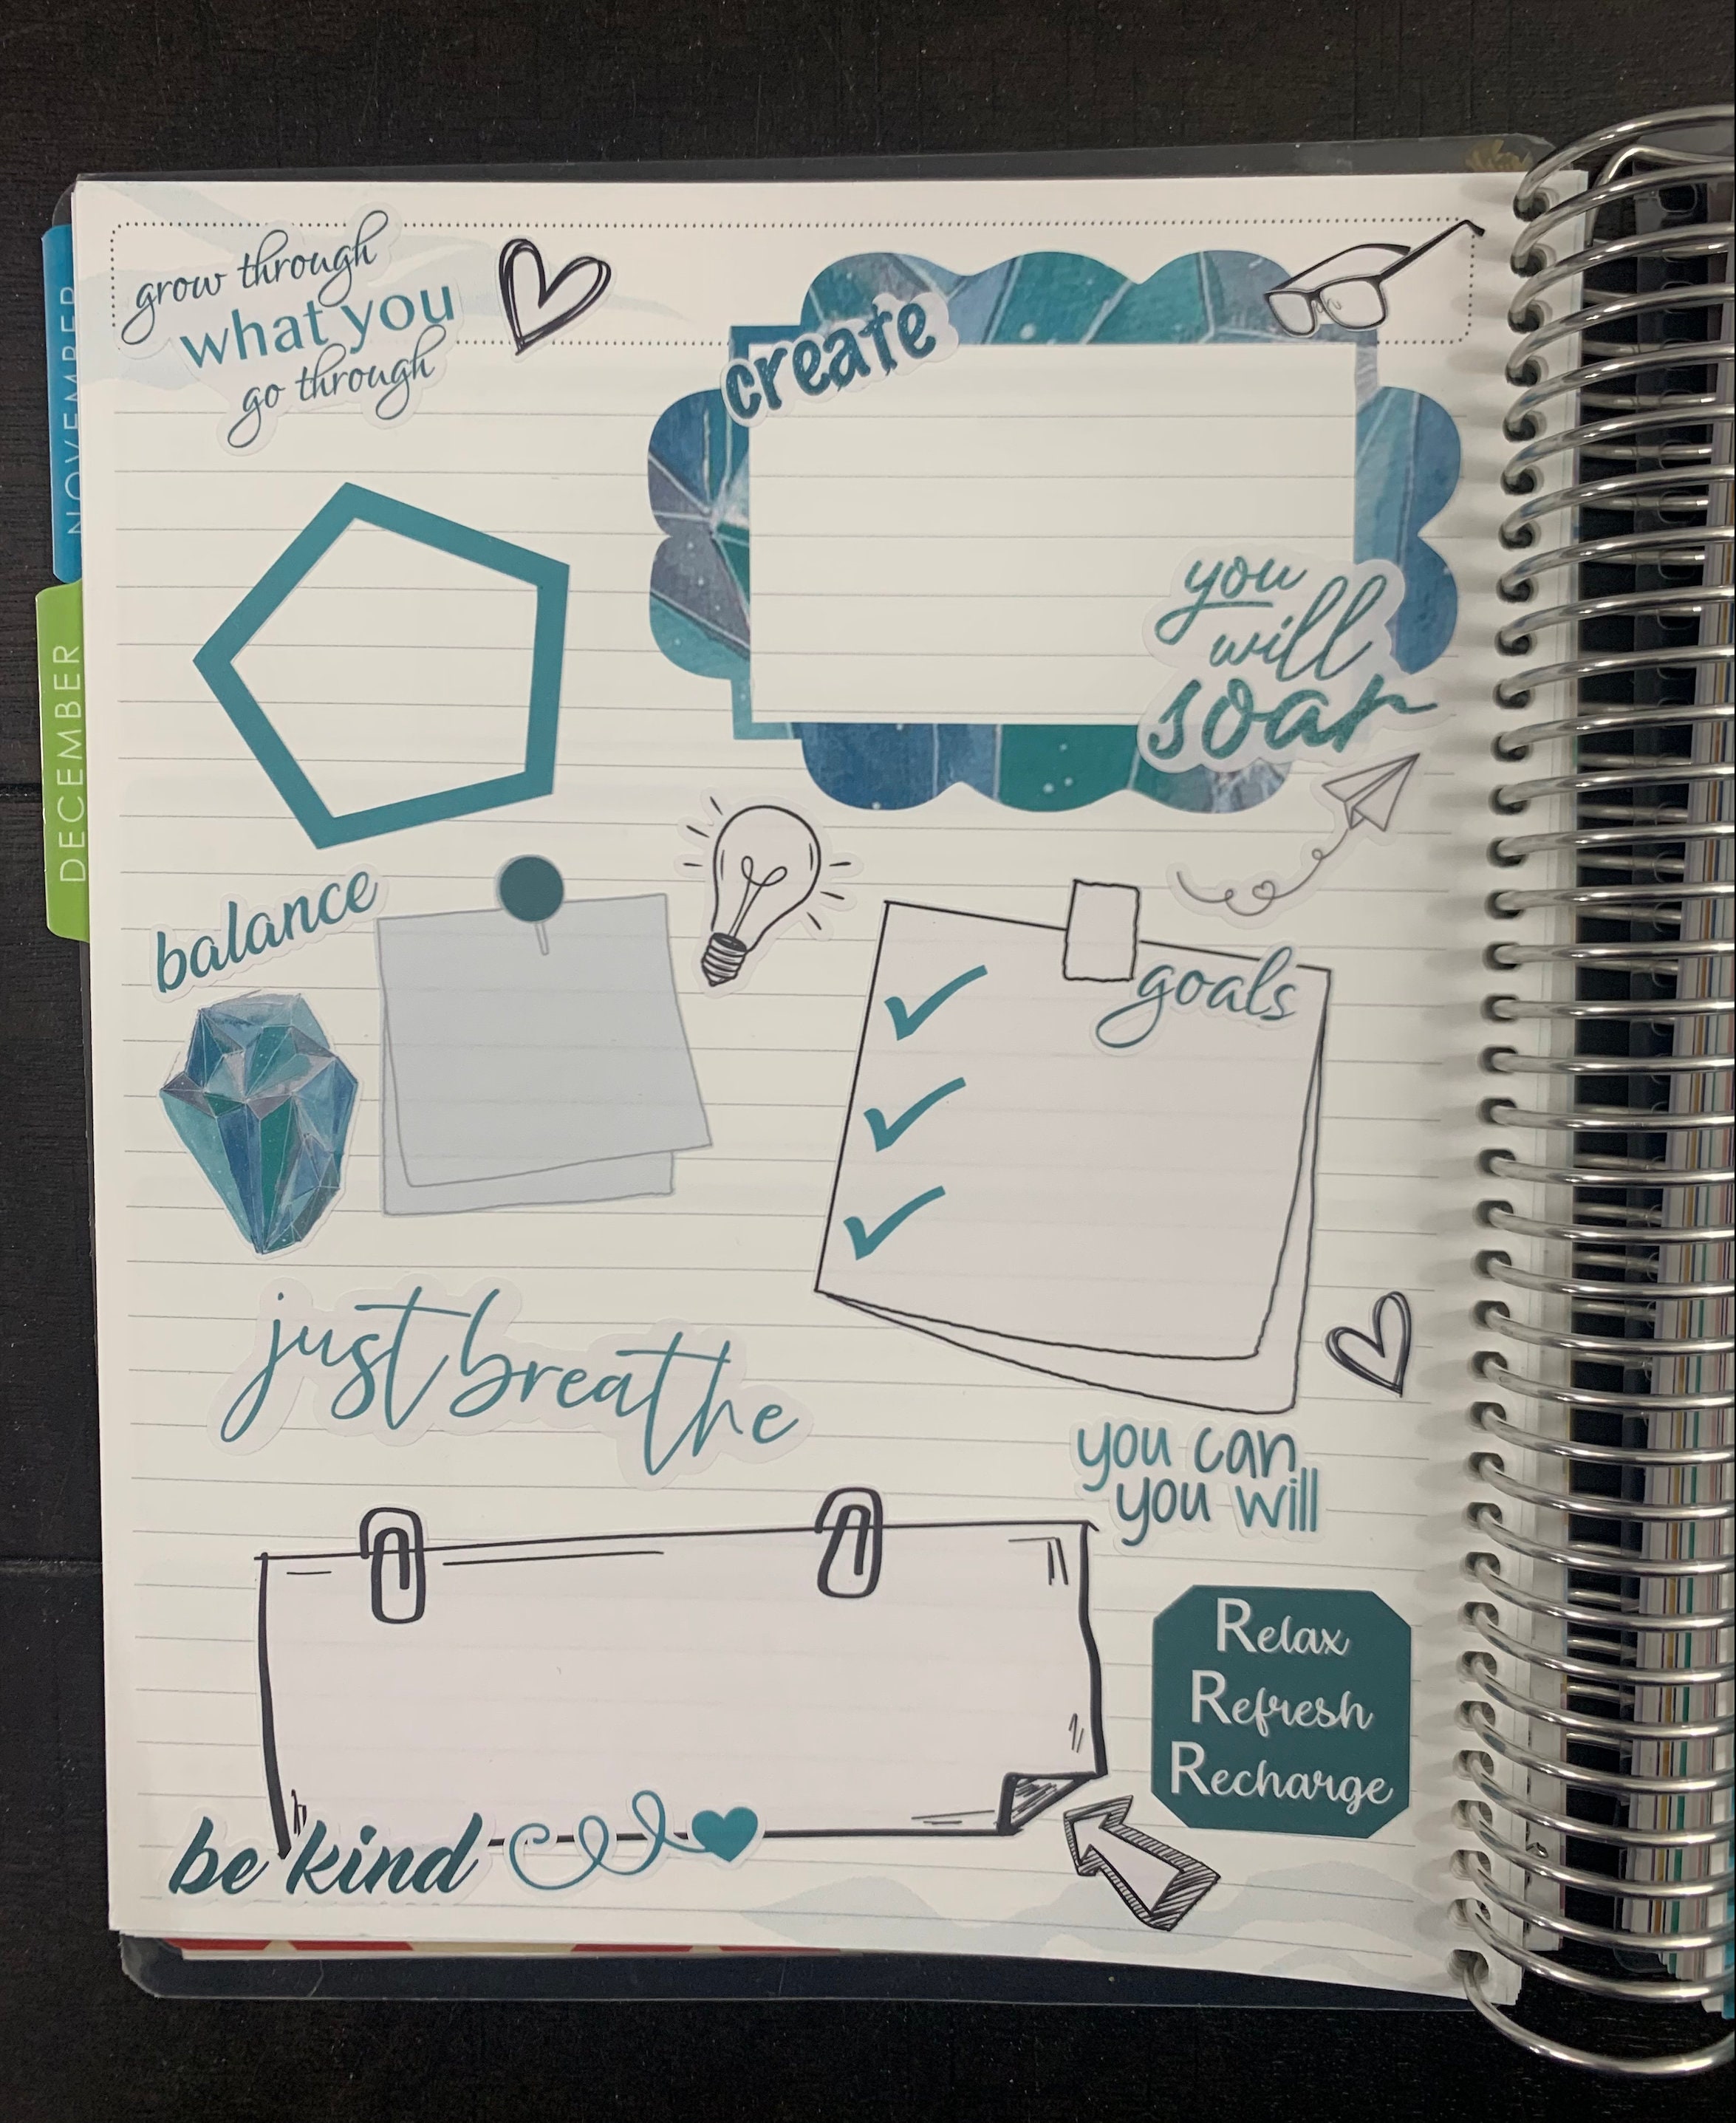 grow through
what you
go through
create
NOVEMBER
you
will
soar
DECEMBER
balance
goals
just breathe
you can
you will
Relax
Refresh
Recharge
be kind